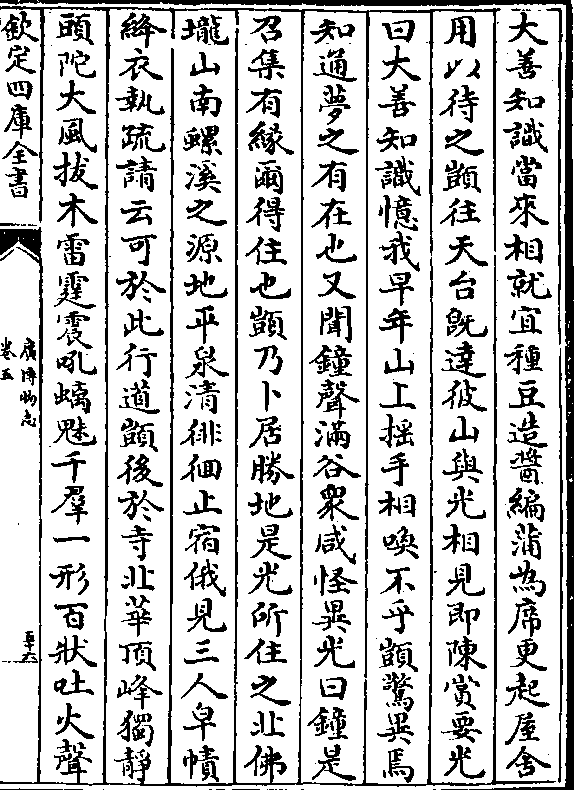 大善知識當來相就宜種豆造醬編蒲為席更起屋舍
用以待之顗往天台既達彼山與光相見即陳賞要光
曰大善知識憶我早年山上揺手相喚不乎顗驚異焉
知通夢之有在也又聞鐘聲滿谷衆咸怪異光曰鐘是
召集有縁爾得住也顗乃卜居勝地是光所住之北佛
壠山南螺溪之源地平泉清徘徊止宿俄見三人皁幘
絳衣執疏請云可於此行道顗後於寺北華頂峰獨靜
頭陀大風拔木雷霆震吼螭魅千羣一形百狀吐火聲
欽定四庫全書
廣博物志
卷五